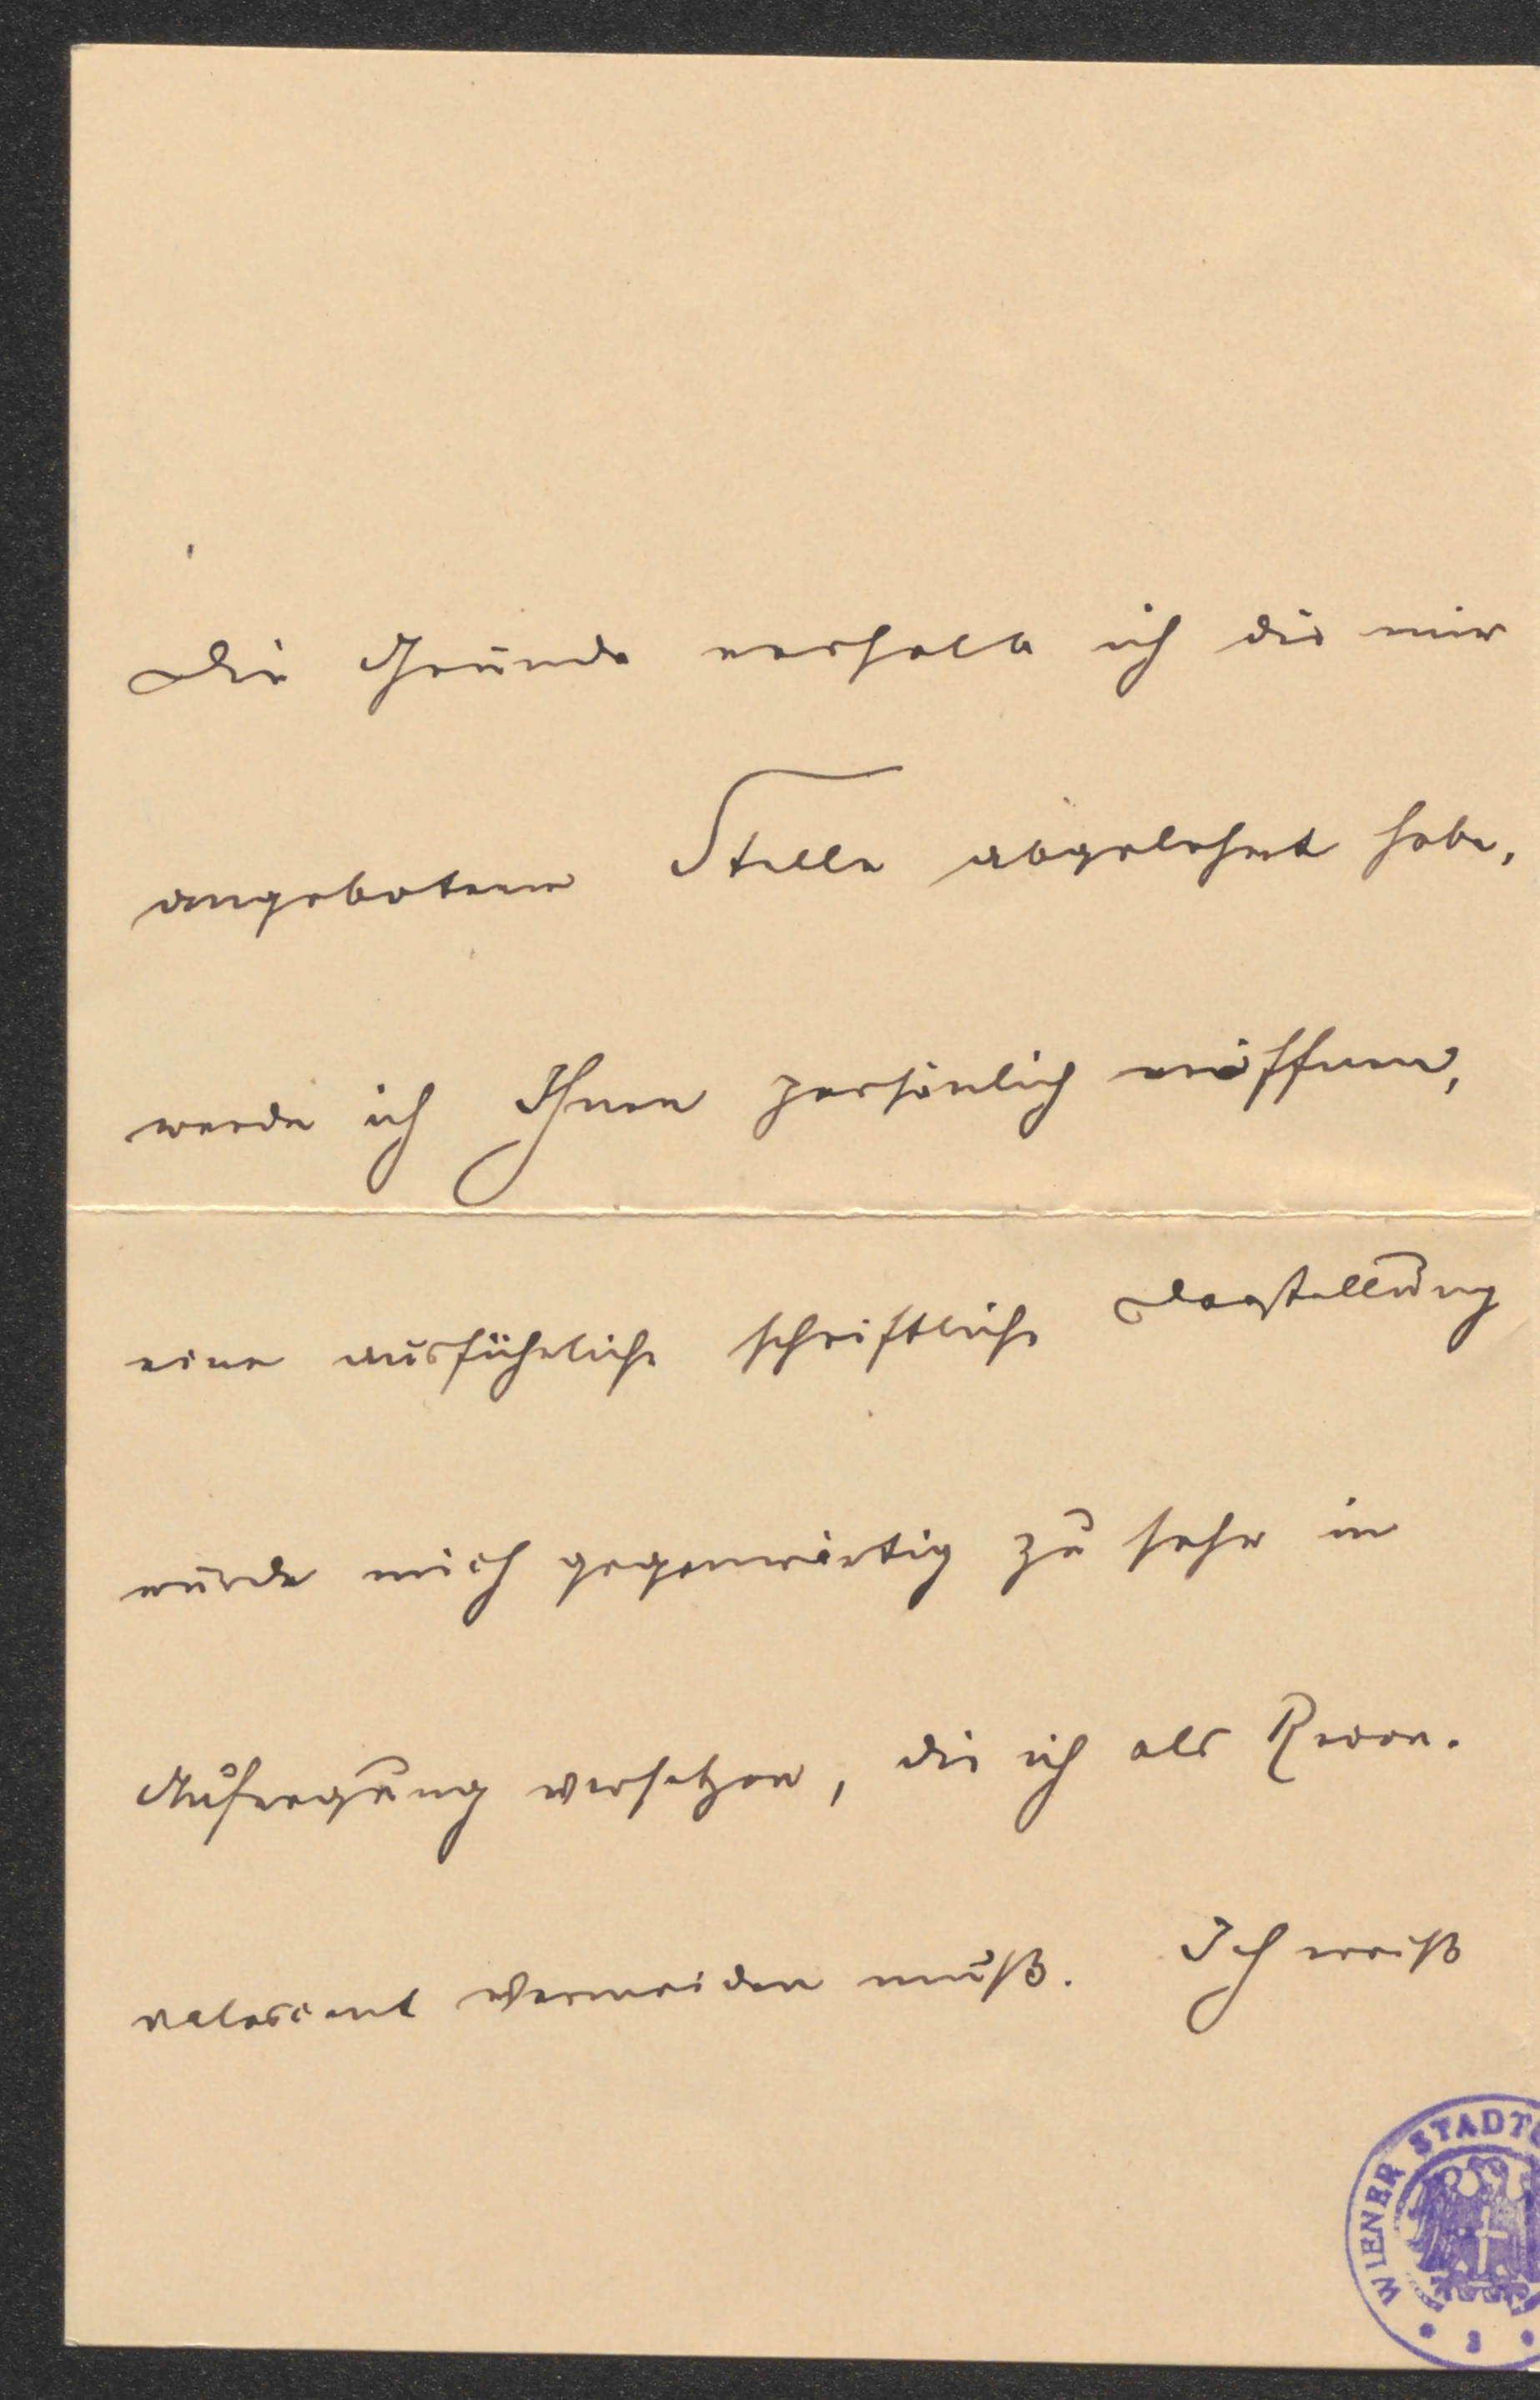 Die Gründe weshalb ich die mir
angebotene Stelle abgelehnt habe,
werde ich Ihnen persönlich eröffnen,
eine ausführliche schriftliche Darstellung
würde mich gegenwärtig zu sehr in
Aufregung versetzen, die ich als Recon-
valescent vermeiden muß. Ich weiß
WIENER STADT